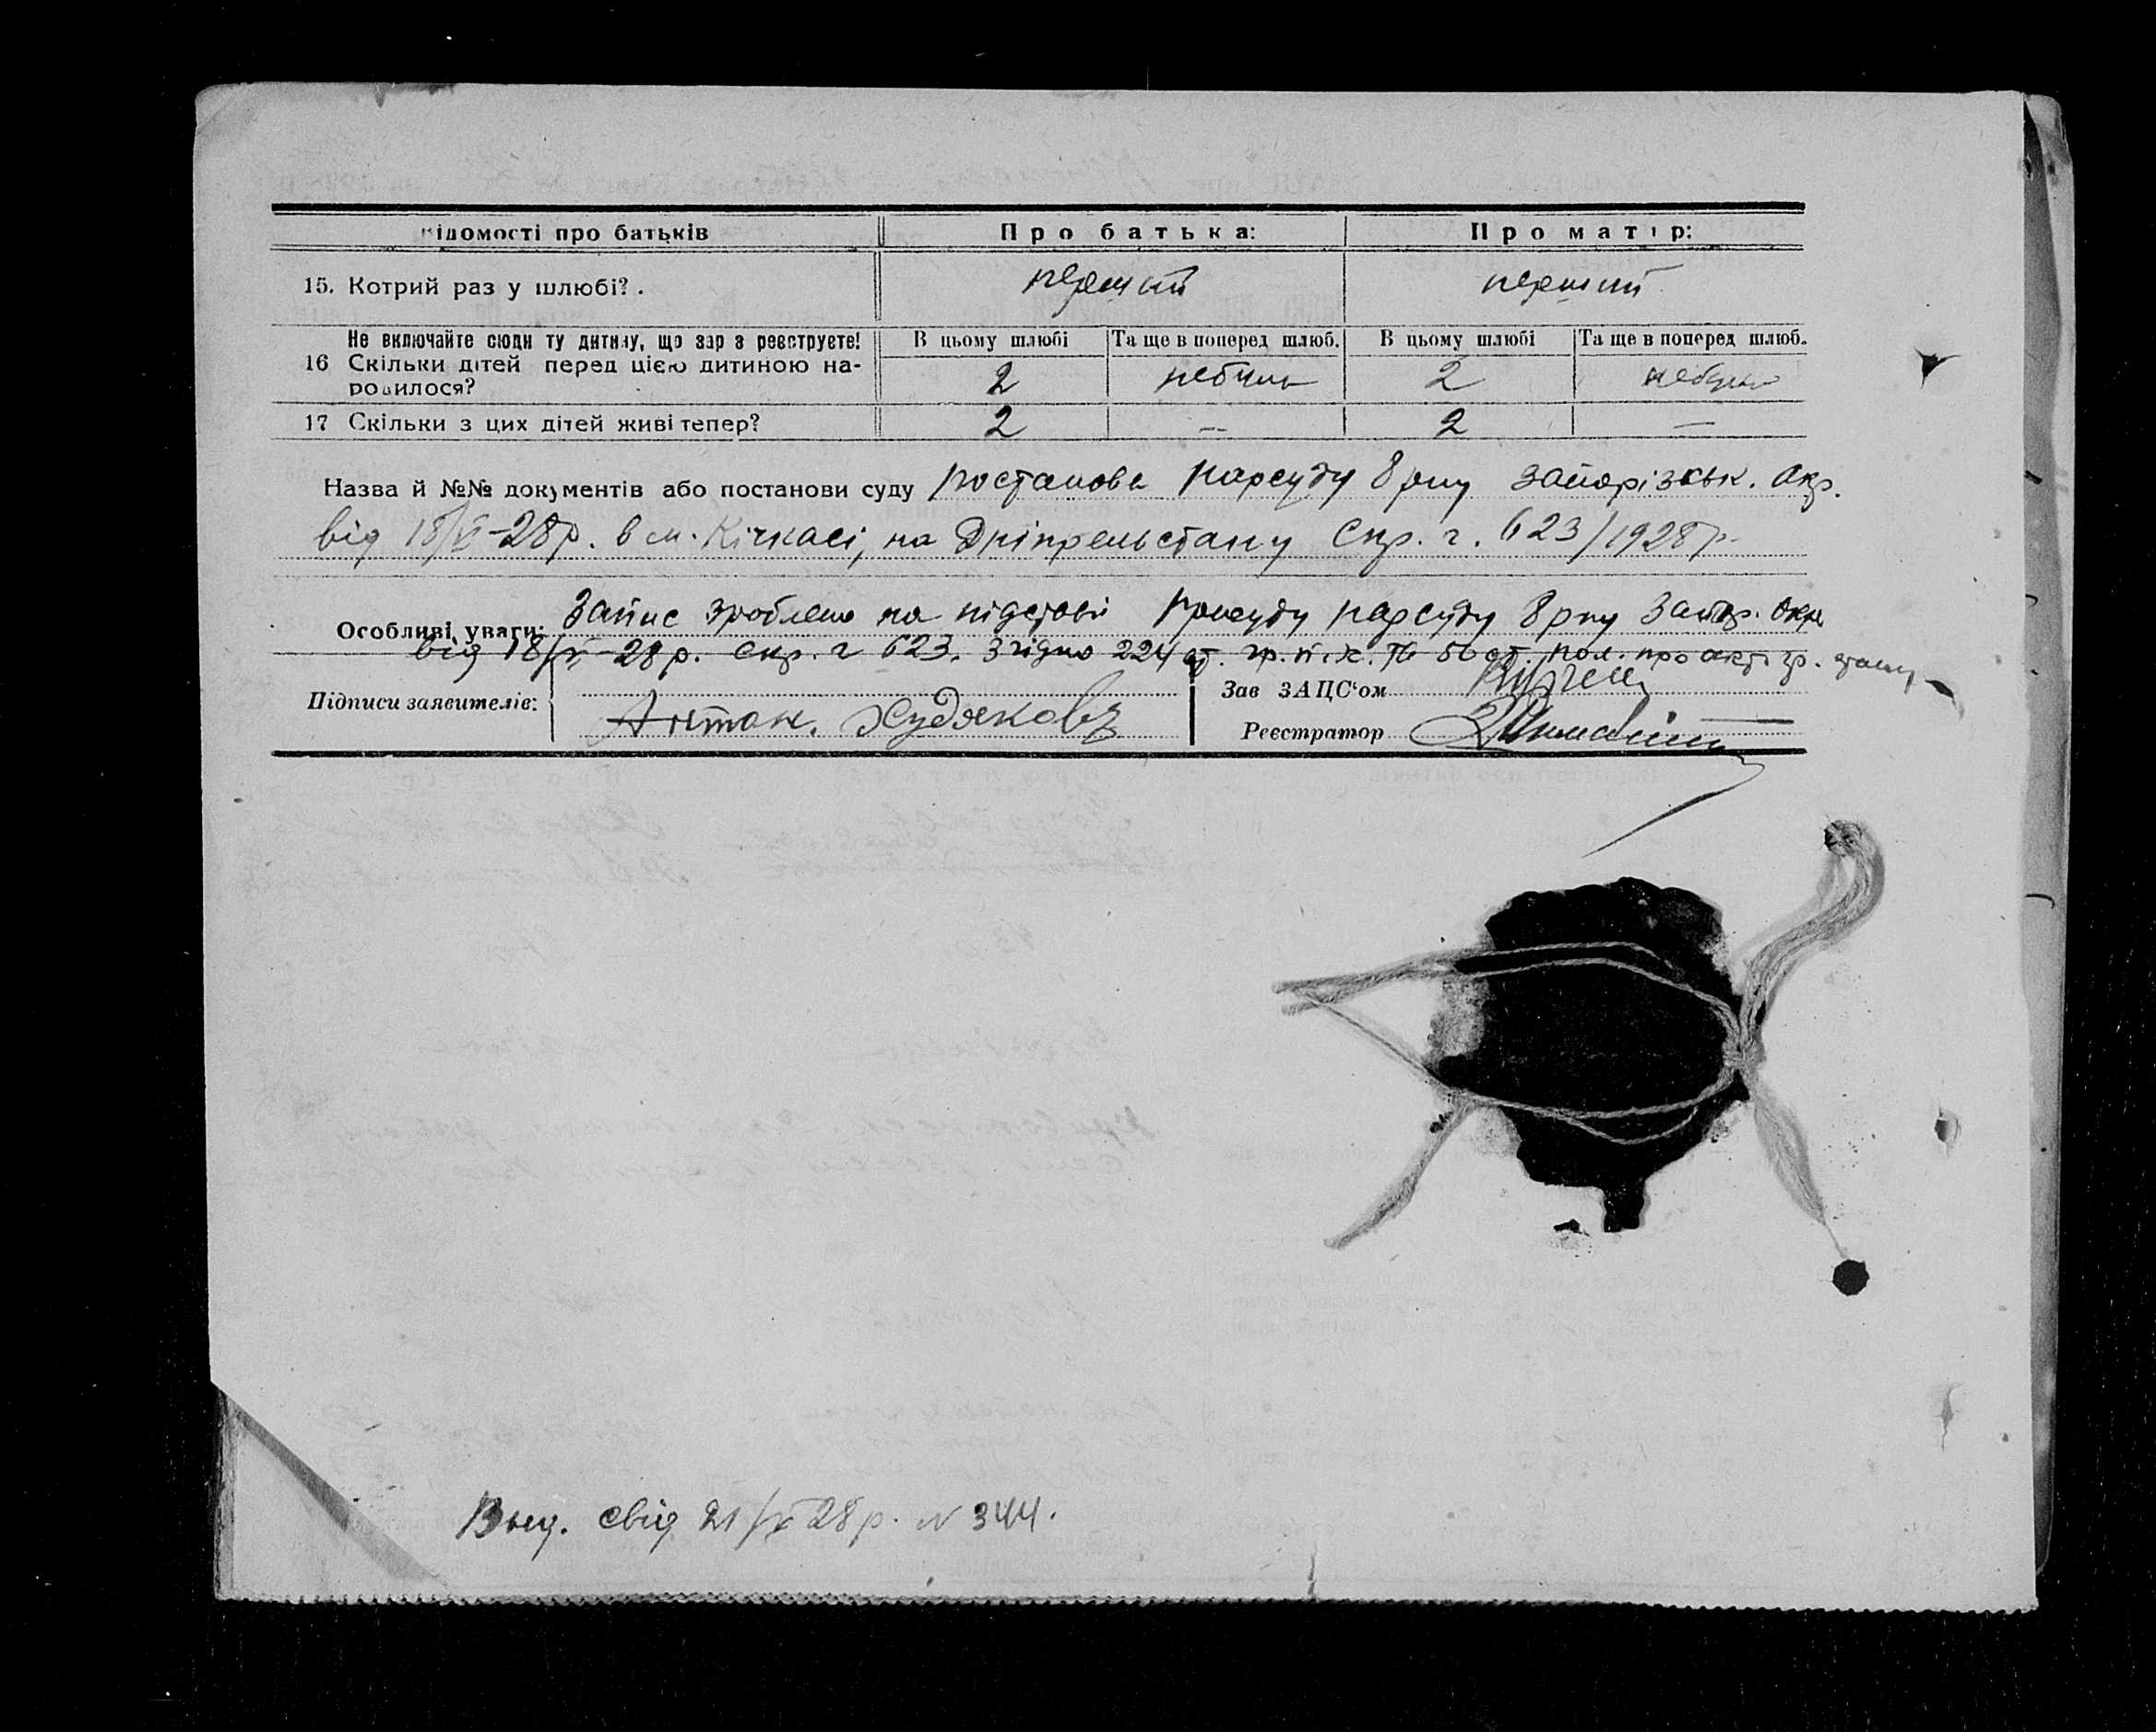 Відомості про батьків Про батька: Про матір:
15. Котрий раз у шлюбі? . перший перший
Не включайте сюди ту дитину, що зараз реєструєте! В цьому шлюбі Та ще в поперед шлюб. В цьому шлюбі Та ще в поперед шлюб.
16 Скільки дітей перед цією дитиною на- 2 небуло 2 небуло
родилося?
17 Скільки з цих дітей живі тепер? 2 -- 2 —
Назва й №№ документів або постанови суду постанова нарсуду 8 рну Запорізськ. Окр.
від 18/VI-28р. в м. Кічкасі, на Дніпрельстану Спр. ч. 623/1928р.
Особливі уваги: Запис зроблено на підставі присуду нарсуду 8 рну Запор. Окр
від 18/VI-28р. спр. ч 623. Згідно 224 ст. гр.п.к. та 56 ст. пол. про акти гр. стану
Підписи заявителів: Зав ЗАЦС'ом
Антон. Худяковъ Реєстратор
Выд. свід 21/ 28р. № 344.